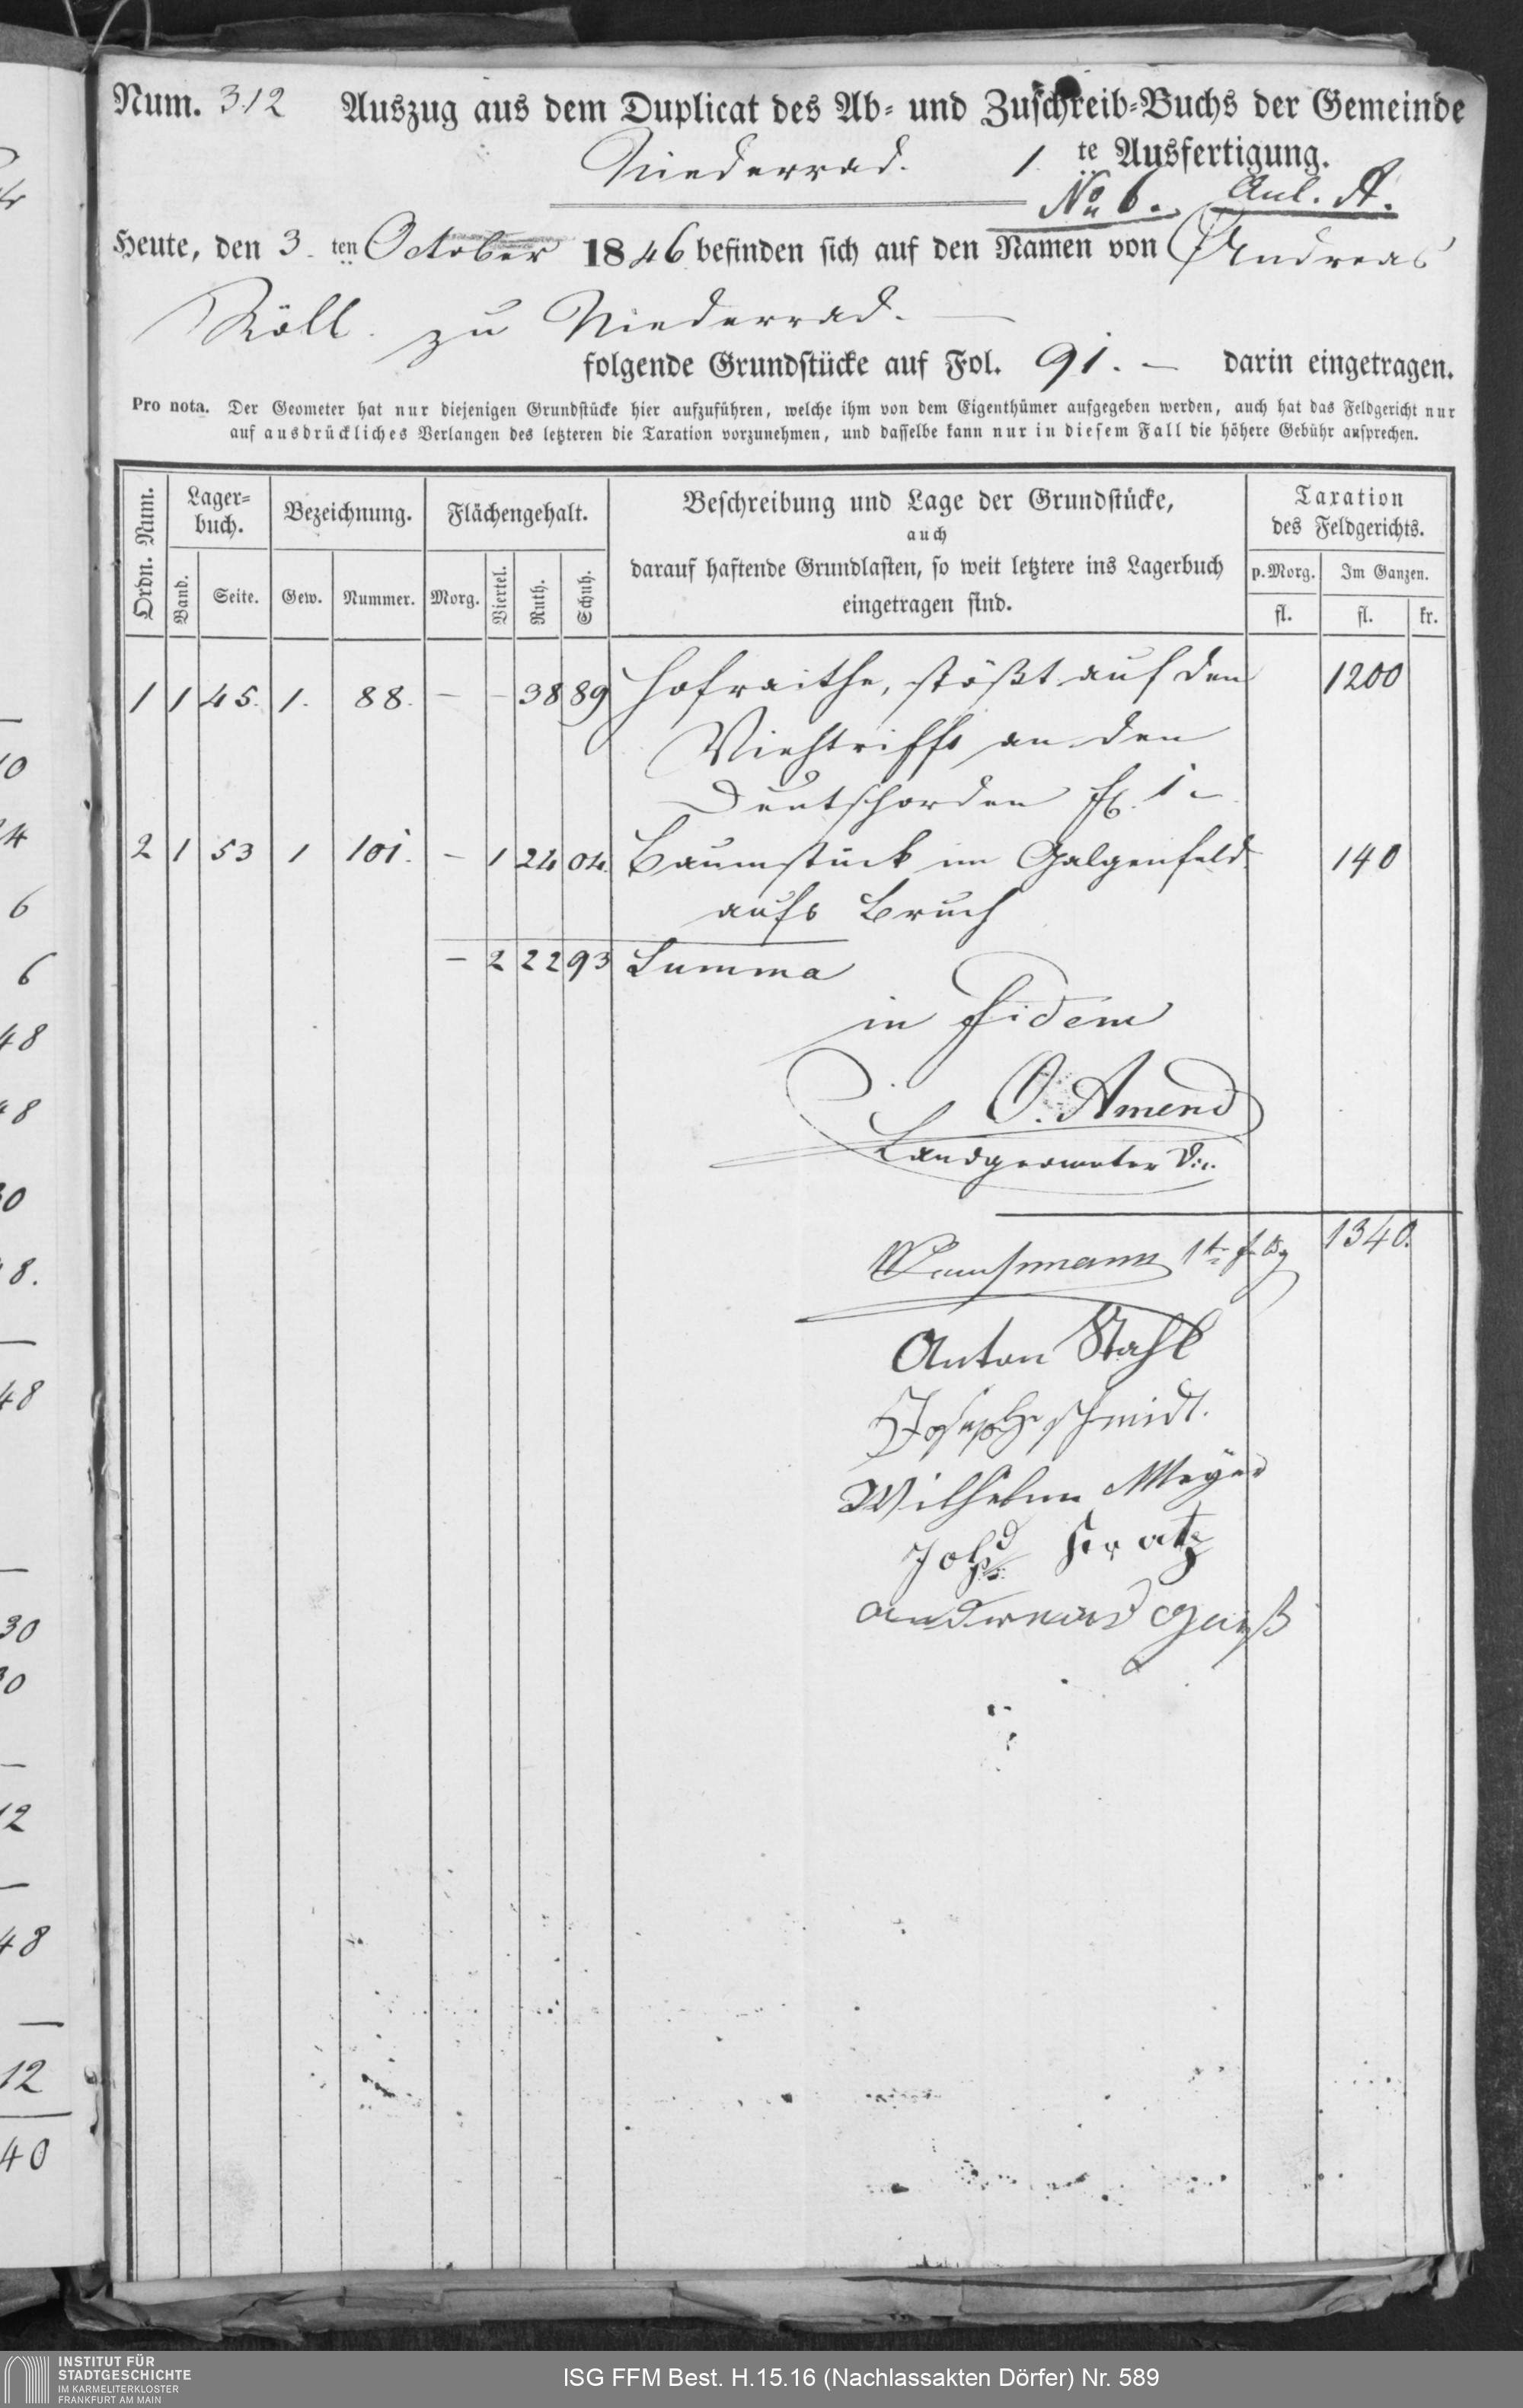 Num. 312 Auszug aus dem Duplicat des Ab- und Zuschreib-Buchs der Gemeinde
Niederrad. 1. te Ausfertigung.
No 6. Anl. A.
Heute, den 3. ten October 1846 befinden sich auf den Namen von Andreas
Röll zu Niederrad.
folgende Grundstücke auf Fol. 91. — darin eingetragen.
Pro nota. Der Geometer hat nur diejenigen Grundstücke hier aufzuführen, welche ihm von dem Eigenthümer aufgegeben werden, auch hat das Feldgericht nur
auf ausdrückliches Verlangen des letzteren die Taxation vorzunehmen, und dasselbe kann nur in diesem Fall die höhere Gebühr ansprechen.
Ordn. Num. Lager-buch. Bezeichnung. Flächengehalt. Beschreibung und Lage der Grundstücke, Taxation
auch des Feldgerichts.
Band. Seite. Gew. Nummer. Morg. Viertel. Ruth. Schuh. darauf haftende Grundlasten, so weit letztere ins Lagerbuch p. Morg. Im Ganzen.
eingetragen sind. fl. fl. kr.
1 1 45. 1. 88. — — 38 89 Hofraithe, stößt auf den 1200
Viehtrifft an den
Deutschorden
2 1 53 1 101. — 1 24 04. Baumstück im Galgenfeld 140
aufs Bruch
— 2 22 93 Summa
in Fidem
O. Amend
Landgeometer
1340.
Anton Stahl
Joseph Schmidt.
Wilhelm Meyer
Joh Kratz
Andreas Geiß
30
48
12
40
INSTITUT FÜR
STADTGESCHICHTE
IM KARMELITERKLOSTER
FRANKFURT AM MAIN
ISG FFM Best. H.15.16 (Nachlassakten Dörfer) Nr. 589